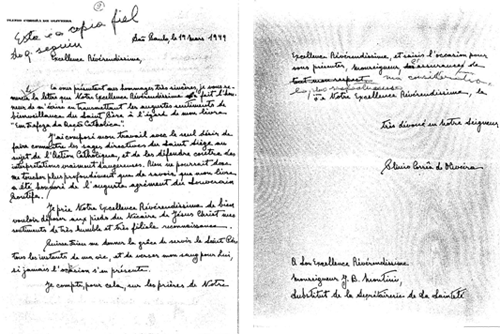 PLINIO CORRÊA DE OLIVEIRA
Esta é a copia fiel
São Paulo, le 19 mars 1949
Excellence Révérendissime,
En vous présentant mes hommages très sincères, je vous re-
mercie la lettre que Votre Excellence Révérendissime m'a fait l'hon-
neur de m'écrire en transmettant les augustes sentiments de
bienveillance du Saint Père à l'égard de mon livre
"Em defesa da Ação Catholica".
J'ai composé mon travail avec le seul désir de
faire connaître les sages directives du Saint Siège au
sujet de l'Action Catholique, et de les défendre contre des
interprétations vraiment dangereuses. Rien ne pourrait donc
me toucher plus profondément que de savoir que mon livre
a été honoré de l'auguste agrément du Souverain
Pontife.
Je prie Votre Excellence Révérendissime de bien
vouloir déposer aux pieds du Vicaire de Jésus Christ mes
sentiments de très humble et très filiale reconnaissance.
me donner la grâce de servir le Saint Père
tous les instants de ma vie, et de verser mon sang pour lui,
si jamais l'occasion s'en présente.
Je compte, pour cela, sur les prières de Votre
Excellence Révérendissime, et saisis l'occasion pour
vous présenter, Monseigneur, les assurances de
tout mon respect ma considération
Votre Excellence Révérendissime, le
Très dévoué en Notre Seigneur
Plinio Corrêa de Oliveira
A Son Excellence Révérendissime
Monseigneur J. B. Montini,
Substitut de la Secrétairerie de Sa Sainteté